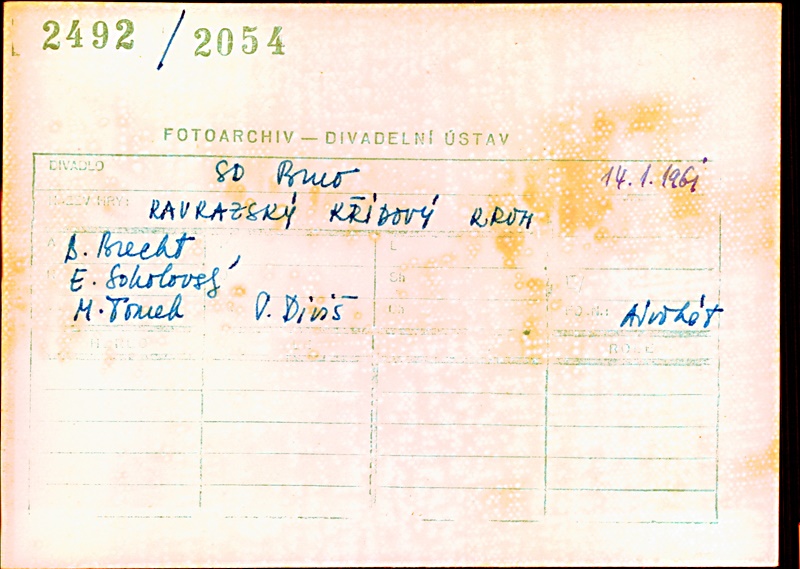 2492 / 2054
FOTOARCHIV — DIVADELNÍ ÚSTAV
DIVADLO SD Brno 14.1.1961
NÁZEV HRY: KAVKAZSKÝ KŘÍDOVÝ KRUH
A B. Brecht L
E. Sokolovský Ch
M. Tomek V. Diviš
ROLE